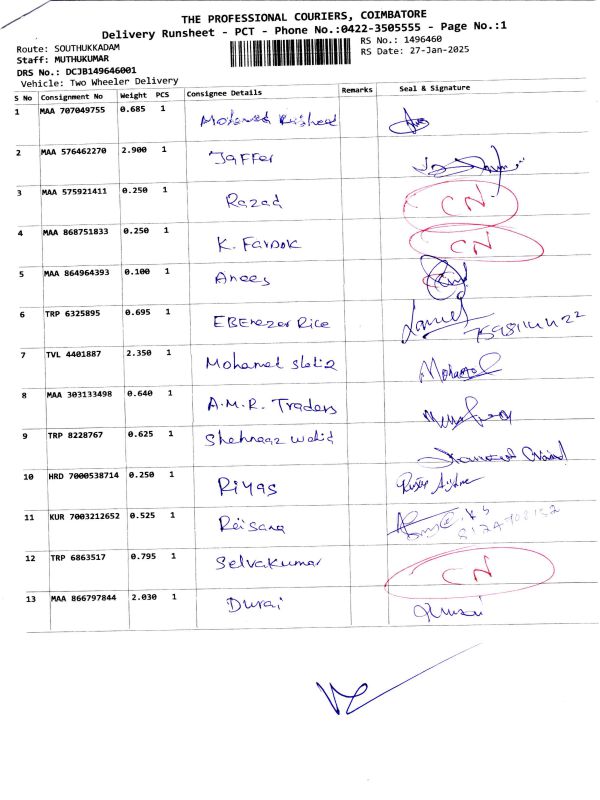 THE PROFESSIONAL COURIERS, COIMBATORE
Delivery Runsheet - PCT - Phone No.:0422-3505555 - Page No.:1
Route: SOUTHUKKADAM
RS No.: 1496460
Staff: MUTHUKUMAR
RS Date: 27-Jan-2025
DRS No.: DCJB149646001
Vehicle: Two Wheeler Delivery
S No Consignment No Weight PCS Consignee Details Remarks Seal & Signature
1 MAA 707049755 0.685 1 Mohamed
2 MAA 576462270 2.900 1 Jaffer
3 MAA 575921411 0.250 1 Razad CN
4 MAA 868751833 0.250 1 K. Farook CN
5 MAA 864964393 0.100 1 Anees
6 TRP 6325895 0.695 1 EBEnezer Rice
7 TVL 4401887 2.350 1 Mohamed
8 MAA 303133498 0.640 1 A.M.R. Traders
9 TRP 8228767 0.625 1 Shehnaaz Wahid
10 HRD 7000538714 0.250 1 Riyas
11 KUR 7003212652 0.525 1 Reisana
12 TRP 6863517 0.795 1 Selvakumar CN
13 MAA 866797844 2.030 1 Durai